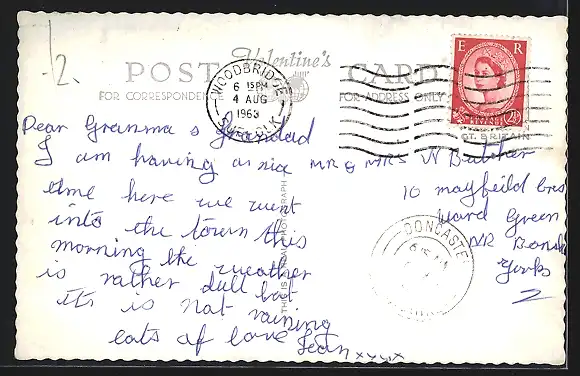 2.
Valentine's
POST CARD
FOR CORRESPONDENCE FOR ADDRESS ONLY
WOODBRIDGE
6 15PM
4 AUG
1963
SUFFOLK
E R
2½
GT. BRITAIN
Dear Granma & Grandad
I am having a nice
time here we went
into the town this
morning the weather
is rather dull but
it is not raining
lots of love
Jean xxxx
MR & MRS W Butcher
10 mayfeild Cres
Ward Green
NR
Yorks
2
THIS IS A PHOTOGRAPH
DONCASTE